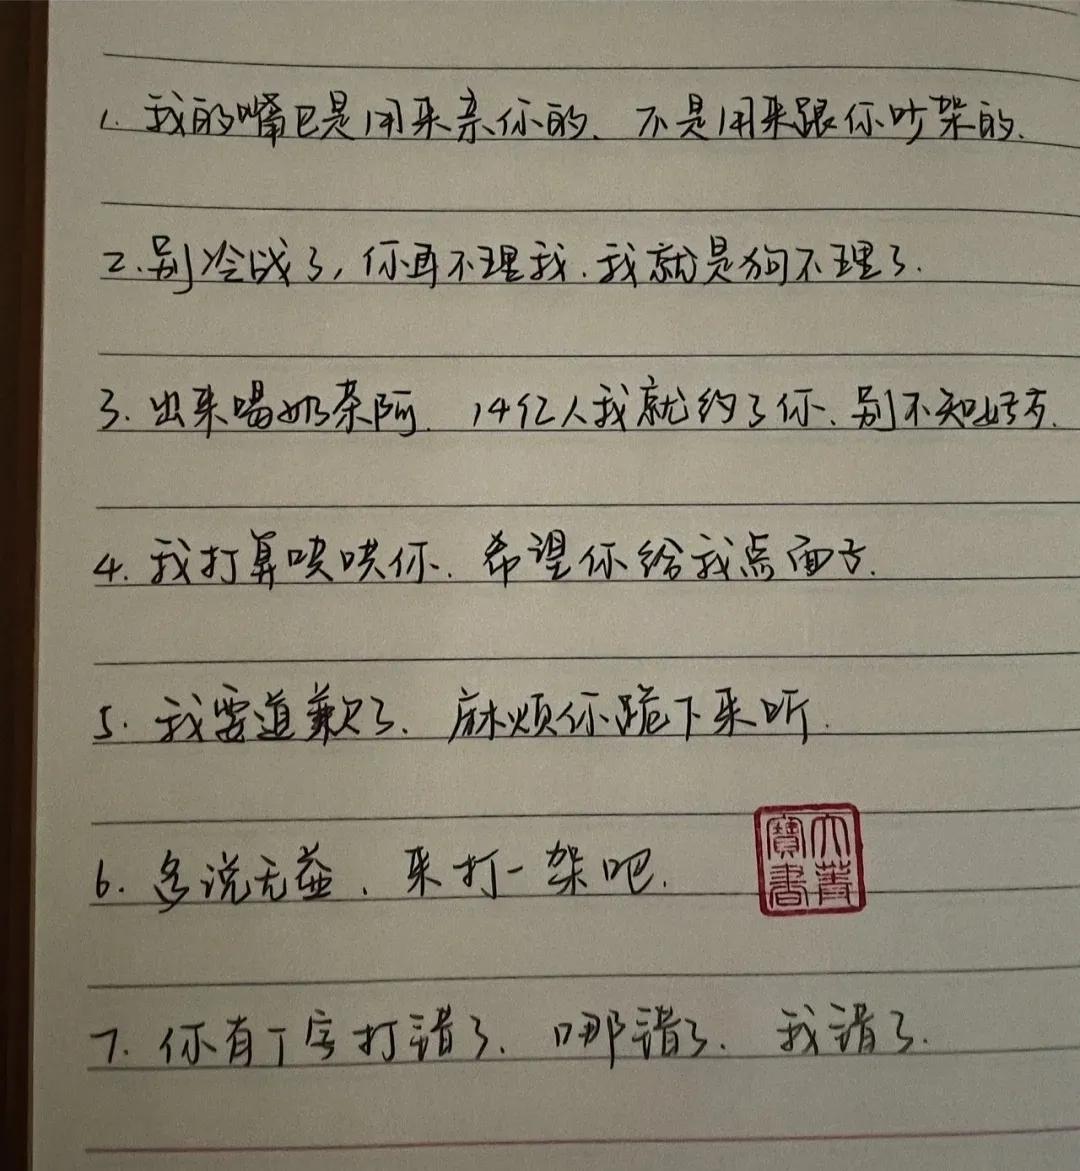 1. 我的嘴巴是用来亲你的、不是用来跟你吵架的.
2. 别冷战了,你再不理我.我就是狗不理了.
3. 出来喝奶茶阿. 14亿人我就约了你、别不知好歹.
4. 我打算哄哄你. 希望你给我点面子.
5. 我要道歉了、麻烦你跪下来听.
6. 多说无益、来打一架吧.
大菁
寶書
7. 你有个字打错了. 哪错了. 我错了.